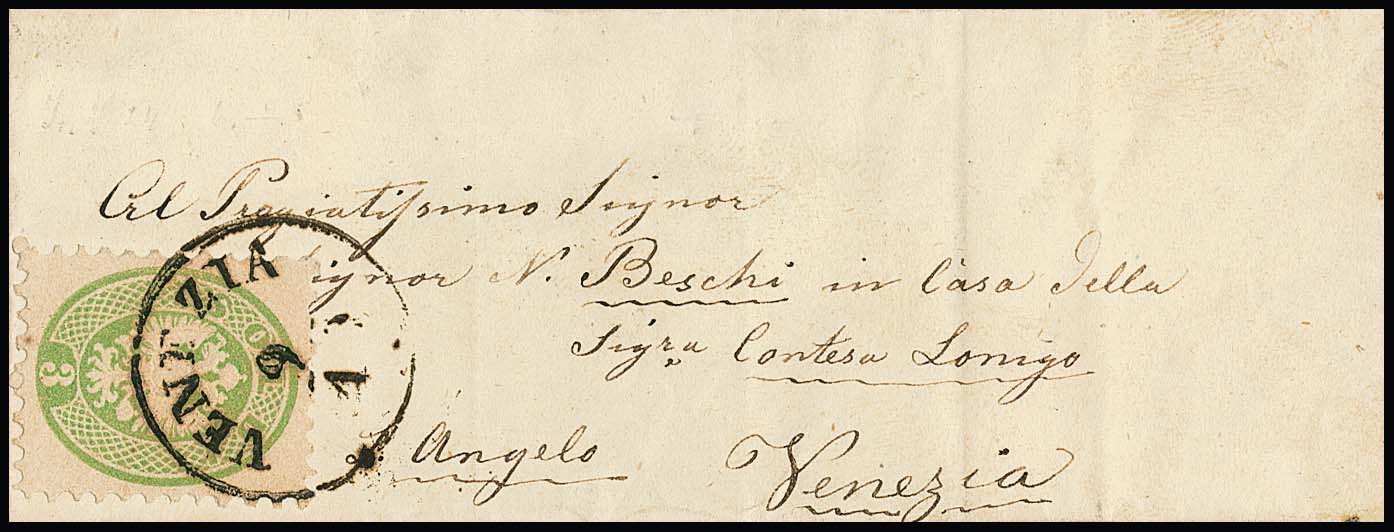 Al Pregiatissimo Signor
Signor N. Beschi in Casa Della
Sigra Contesa Lonigo
S. Angelo Venezia
VENEZIA
9
1
3 SO